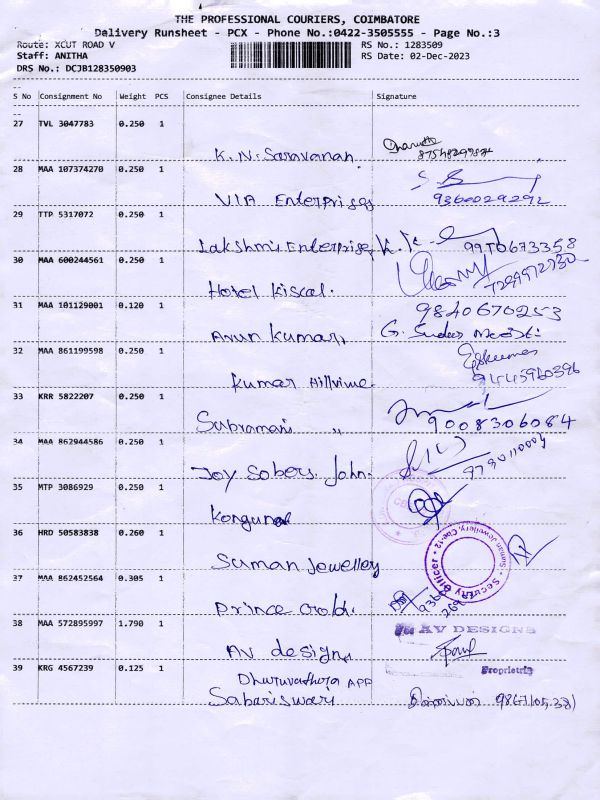 THE PROFESSIONAL COURIERS, COIMBATORE
Delivery Runsheet - PCX - Phone No.:0422-3505555 - Page No.:3
Route: XCUT ROAD V RS No.: 1283509
Staff: ANITHA RS Date: 02-Dec-2023
DRS No.: DCJB128350903
S No Consignment No Weight PCS Consignee Details Signature
27 TVL 3047783 0.250 1
K.N. Saravanan
28 MAA 107374270 0.250 1
VIA Enterprises 9360029292
29 TTP 5317072 0.250 1
Lakshmi Enterprises
30 MAA 600244561 0.250 1
Hotel Kiscal. 7299972730
31 MAA 101129001 0.120 1 9840670253
Arun Kumar G.
32 MAA 861199598 0.250 1
Kumar
33 KRR 5822207 0.250 1
Subramani " 9008306084
34 MAA 862944586 0.250 1
Joy Sobers John.
35 MTP 3086929 0.250 1
36 HRD 50583838 0.260 1
Suman Jewellery
37 MAA 862452564 0.305 1
Prince Gold.
38 MAA 572895997 1.790 1 AV DESIGNS
AV designs
39 KRG 4567239 0.125 1 Proprietrix
APP
Sabariswari